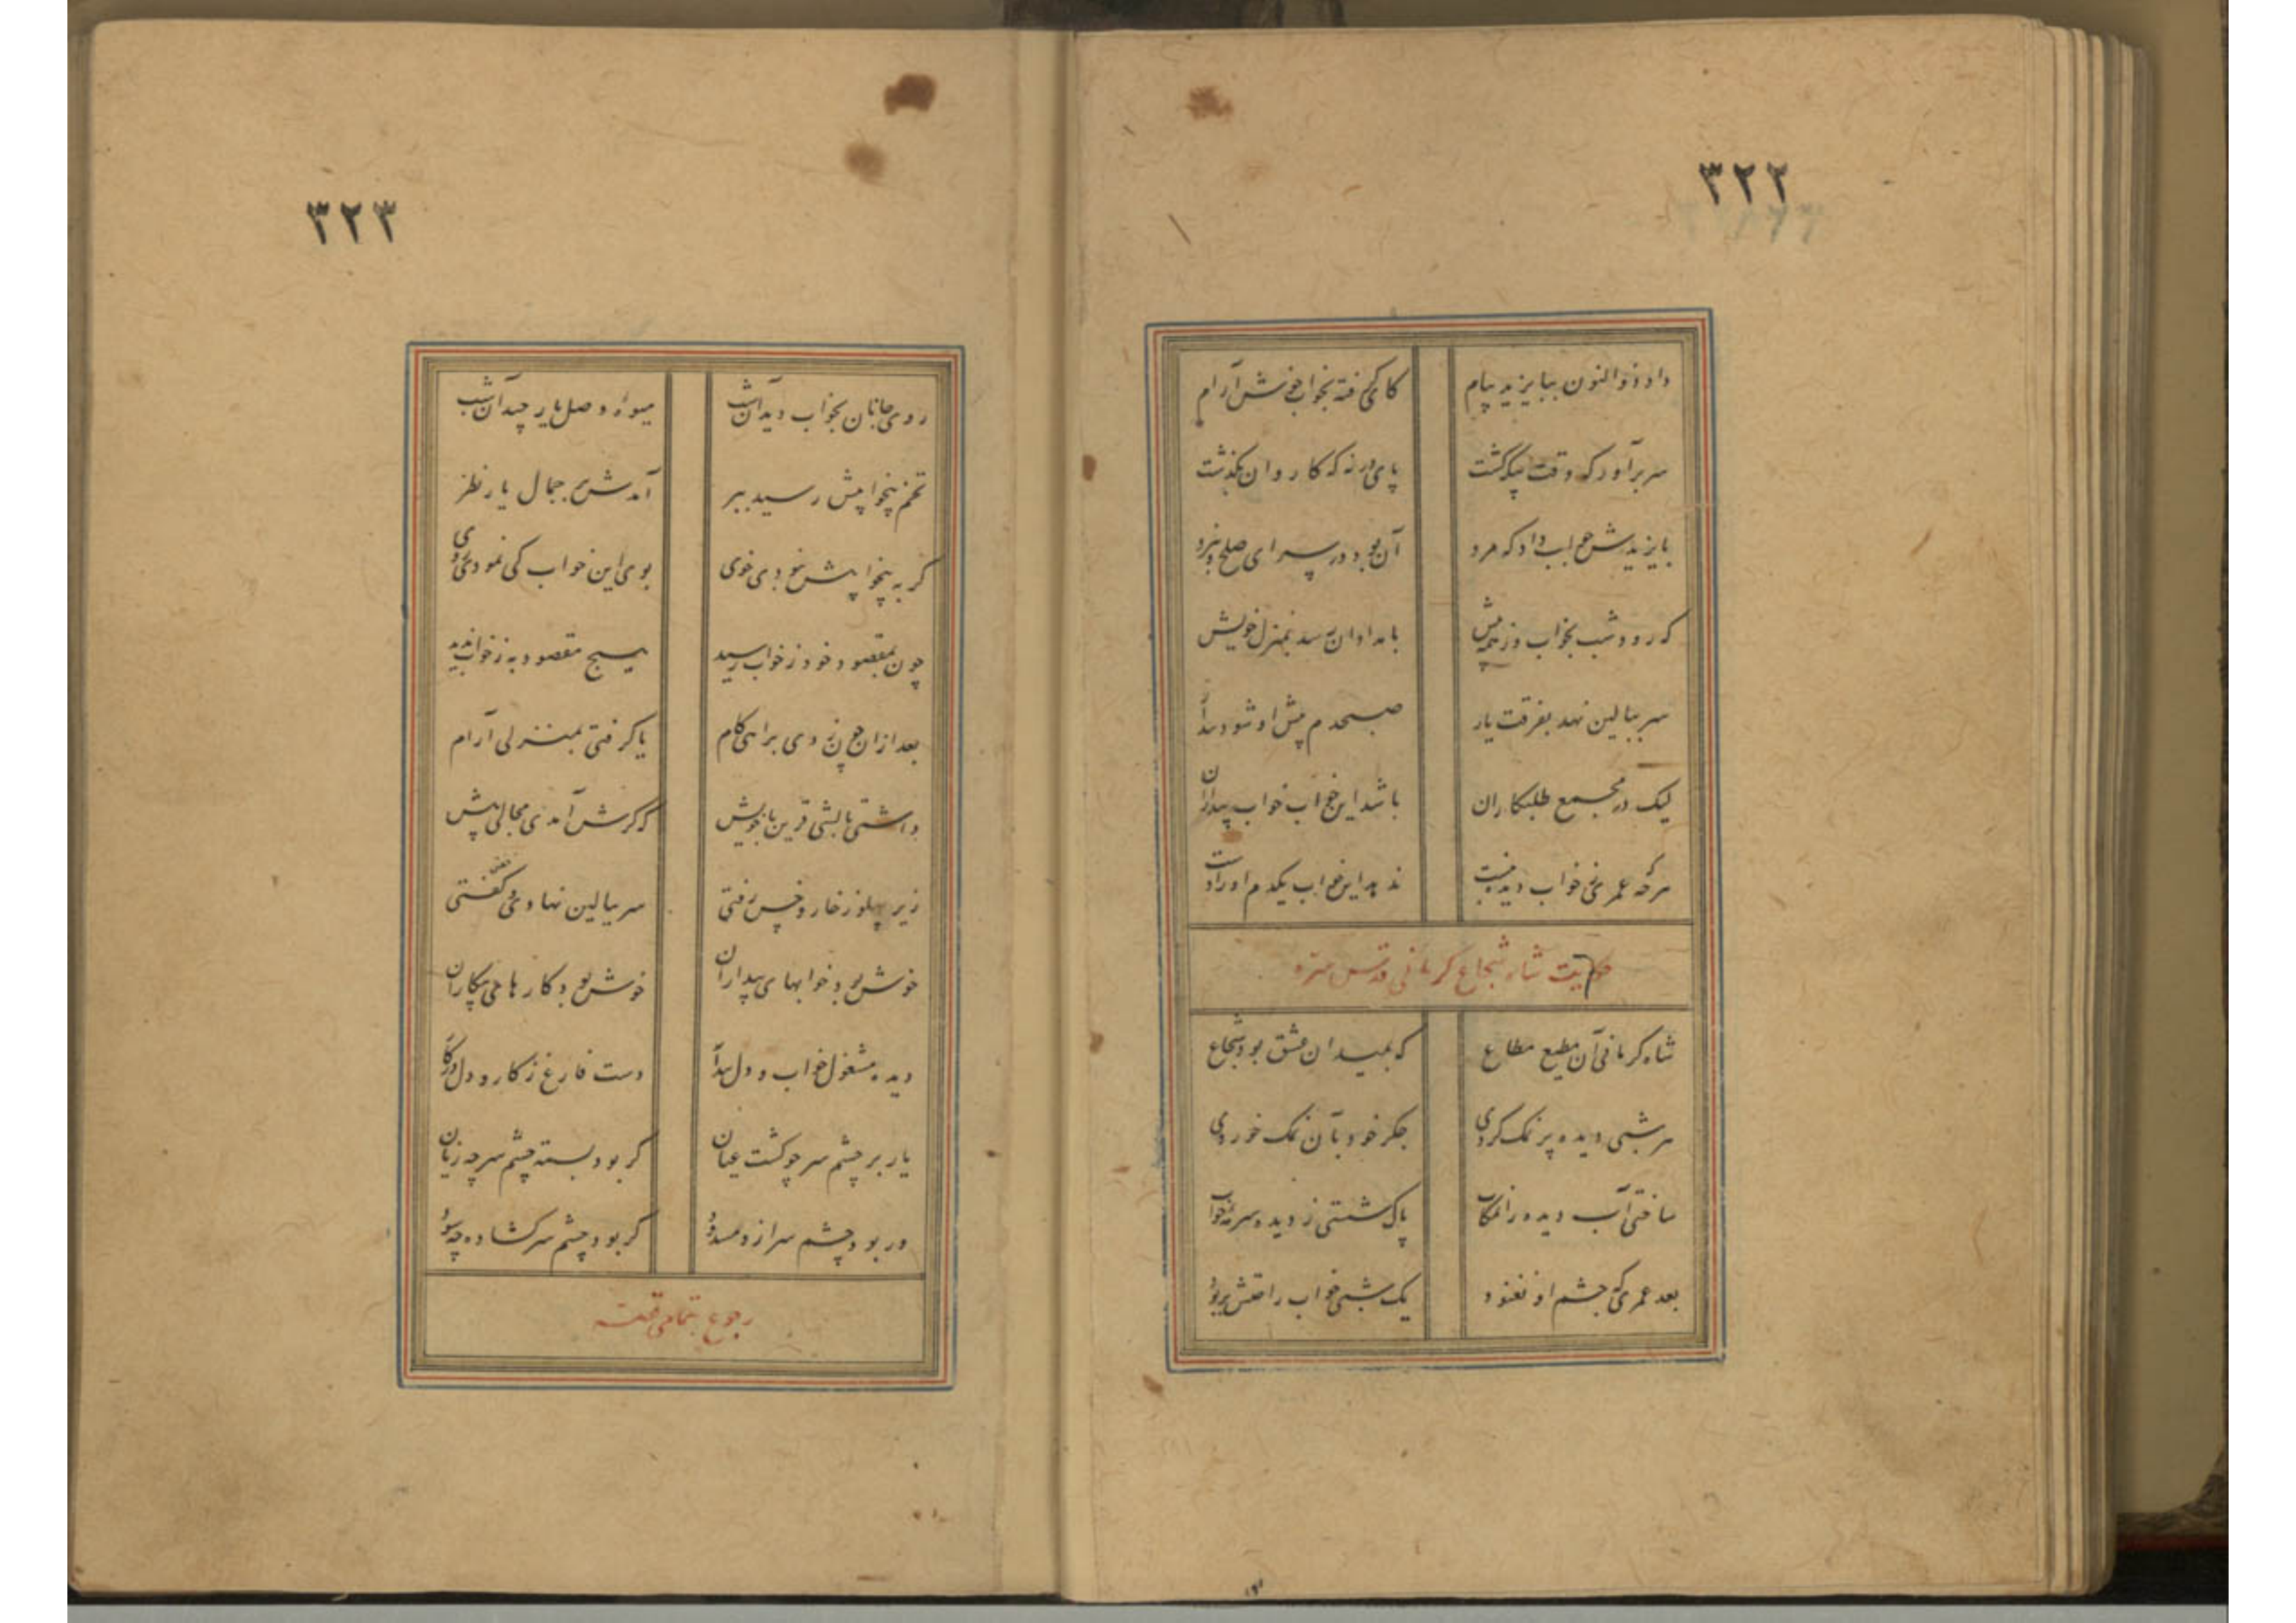 ۳۲۲
داد ذوالنون ببایزید پیام کای خفته بخواب خوش آرام
سر برآور که وقت بیگه گشت پای در نه که کاروان بگذشت
بایزیدش جواب داد که مرد آن بود در سرای صلح و نبرد
که رود شب بخواب وز همه پیش بامدادان رسد بمنزل خویش
سر ببالین نهد بفرقت یار صبحدم پیش او شود بیدار
لیک در مجمع طلبکاران باشد این خواب خواب بیداران
هر که عمری ز خواب دیده نبست ندهد این خواب یکدم او را دست
حکایت شاه شجاع کرمانی قدس سره
شاه کرمانی آن مطیع مطاع که بمیدان عشق بود شجاع
هر شبی دیده پر نمک کردی جگر خود بآن نمک خوردی
ساختی آب دیده را نمکاب پاک شستی ز دیده سرمه خواب
بعد عمری که چشم او نغنود یک شبی خواب را قتش بربود
۳۲۳
روی جانان بخواب دید آن شب میوه وصل یار چید آن شب
تخم بیخوابیش رسید ببر آمدش بر جمال یار نظر
گر به بیخوابیش نبودی خوی بوی این خواب کی نمودی روی
چون بمقصود خود ز خواب رسید هیچ مقصود به ز خواب ندید
بعد ازان چون زدی براهی گام یا گرفتی بمنزلی آرام
داشتی بالشی قرین با خویش که گرش آمدی مجالی پیش
زیر پهلو ز خار و خس رفتی سر ببالین نهادی و خفتی
خوش بود خوابهای بیداران خوش بود کارهای بیکاران
دیده مشغول خواب و دل بیدار دست فارغ ز کار و دل در کار
یار بر چشم سر چو گشت عیان گر بود بسته چشم سر چه زیان
ور بود چشم سر ازو مسدود گر بود چشم سر گشاده چه سود
رجوع بتمامی قصه